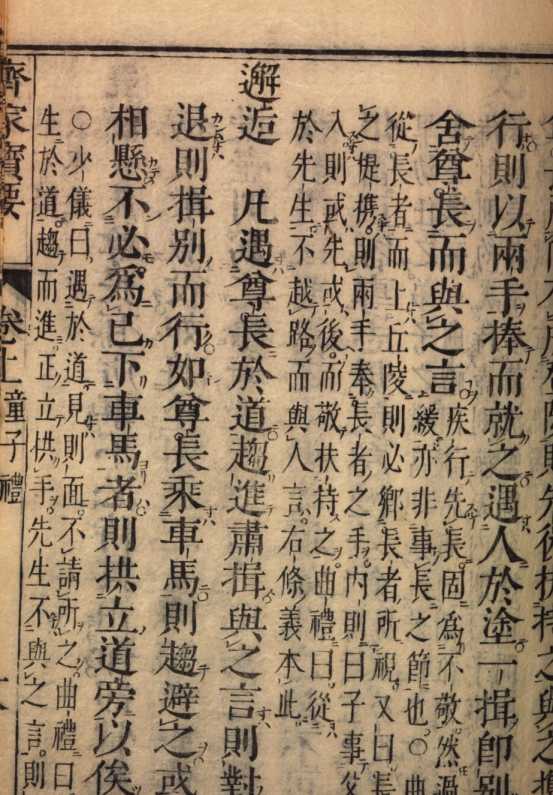 行則以兩手捧而就之遇人於塗一揖即別
舍尊長而與之言 疾行先長固為不敬然過
緩亦非事長之節也○曲
從長者而上丘陵則必鄉長者所視又曰長
之提携則兩手奉長者之手内則曰子事父
入則或先或後而敬扶持之曲禮曰從
於先生不越路而與人言右條義本此
邂逅 凡遇尊長於道趨進肅揖與之言則對
退則揖別而行如尊長乘車馬則趨避之或
相懸不必為已下車馬者則拱立道旁以俟
○少儀曰遇於道見則面不請所之曲禮曰
生於道趨而進正立拱手先生不與之言則
齊家寶要 卷上 童子禮